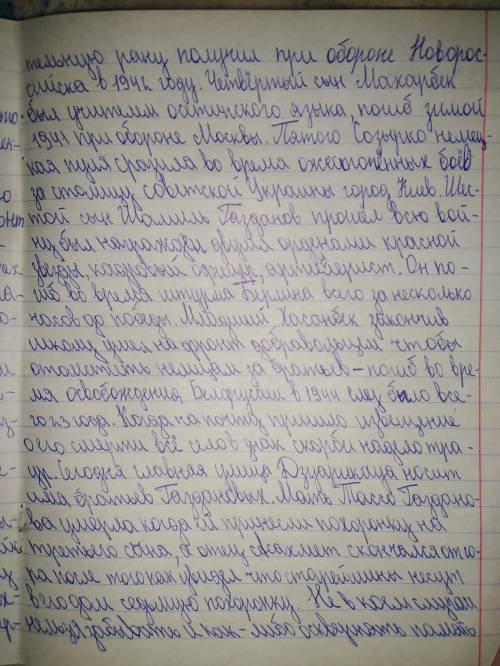 тельную рану получил при обороне Новорос-
сийска в 1942 году. Четвёртый сын Махарбек
был учителем осетинского языка, погиб зимой
1941 при обороне Москвы. Пятого Созырко немец-
кая пуля сразила во время ожесточённых боёв
за столицу советской Украины город Киев. Шес-
той сын Шамиль Газданов прошёл всю вой-
ну, был награждён двумя орденами красной
звезды, кадровый офицер, артиллерист. Он по-
гиб во время штурма Берлина всего за несколько
часов до победы. Младший Хасанбек закончив
школу ушел на фронт добравольцем чтобы
отомстить немцам за братьев - погиб во вре-
мя освобождения Белоруссии в 1944 ему было все-
го 23 года. Когда на почту пришло извещение
о его смерти всё село в знак скорби надело тра-
ур. Сегодня главная улица Дзуарикауа носит
имя братьев Газдановых. Мать Тассо Газдано-
ва умерла когда ей принесли похоронку на
третьего сына, а отец Асахмет скончался от го-
ря после того как увидел что старейшины несут
в его дом седьмую похоронку. Не в коем случае
нельзя забывать и как-либо память